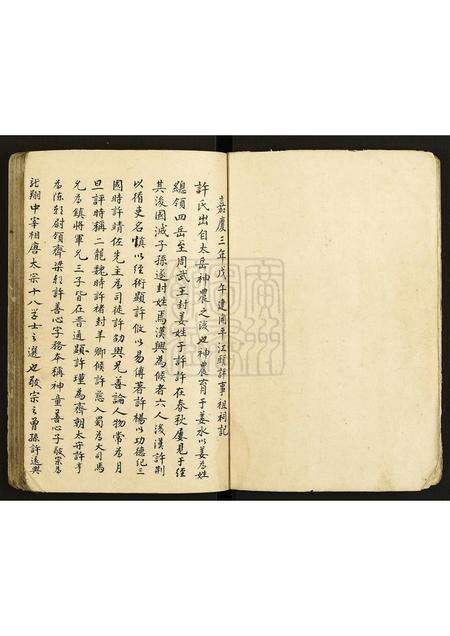 嘉慶三年戊午建國平江頭許事祖祠記
許氏出自太岳神農之後也神農育于姜水以姜為姓
總領四岳至周武王封姜姓于許許在春秋屢見于經
其後國滅子孫遂封姓焉漢興為候者六人後漢許荆
以循吏名慎以經術顯許 以易傳著許楊以功德紀三
國時許靖佐先主為司徒許劭與兄善論人物當為月
旦評時稱二龍魏時許褚封羊鄉候許慈入蜀為大司馬
兄為鎮將軍兄三子皆在普通顯許瑾為齊朝太守許亨
為陳 尉領齊梁 許善心字務本稱神童善心子敬宗為
龍翔中宰相唐太宗十八学士之選也敬宗之曾孫許遠與